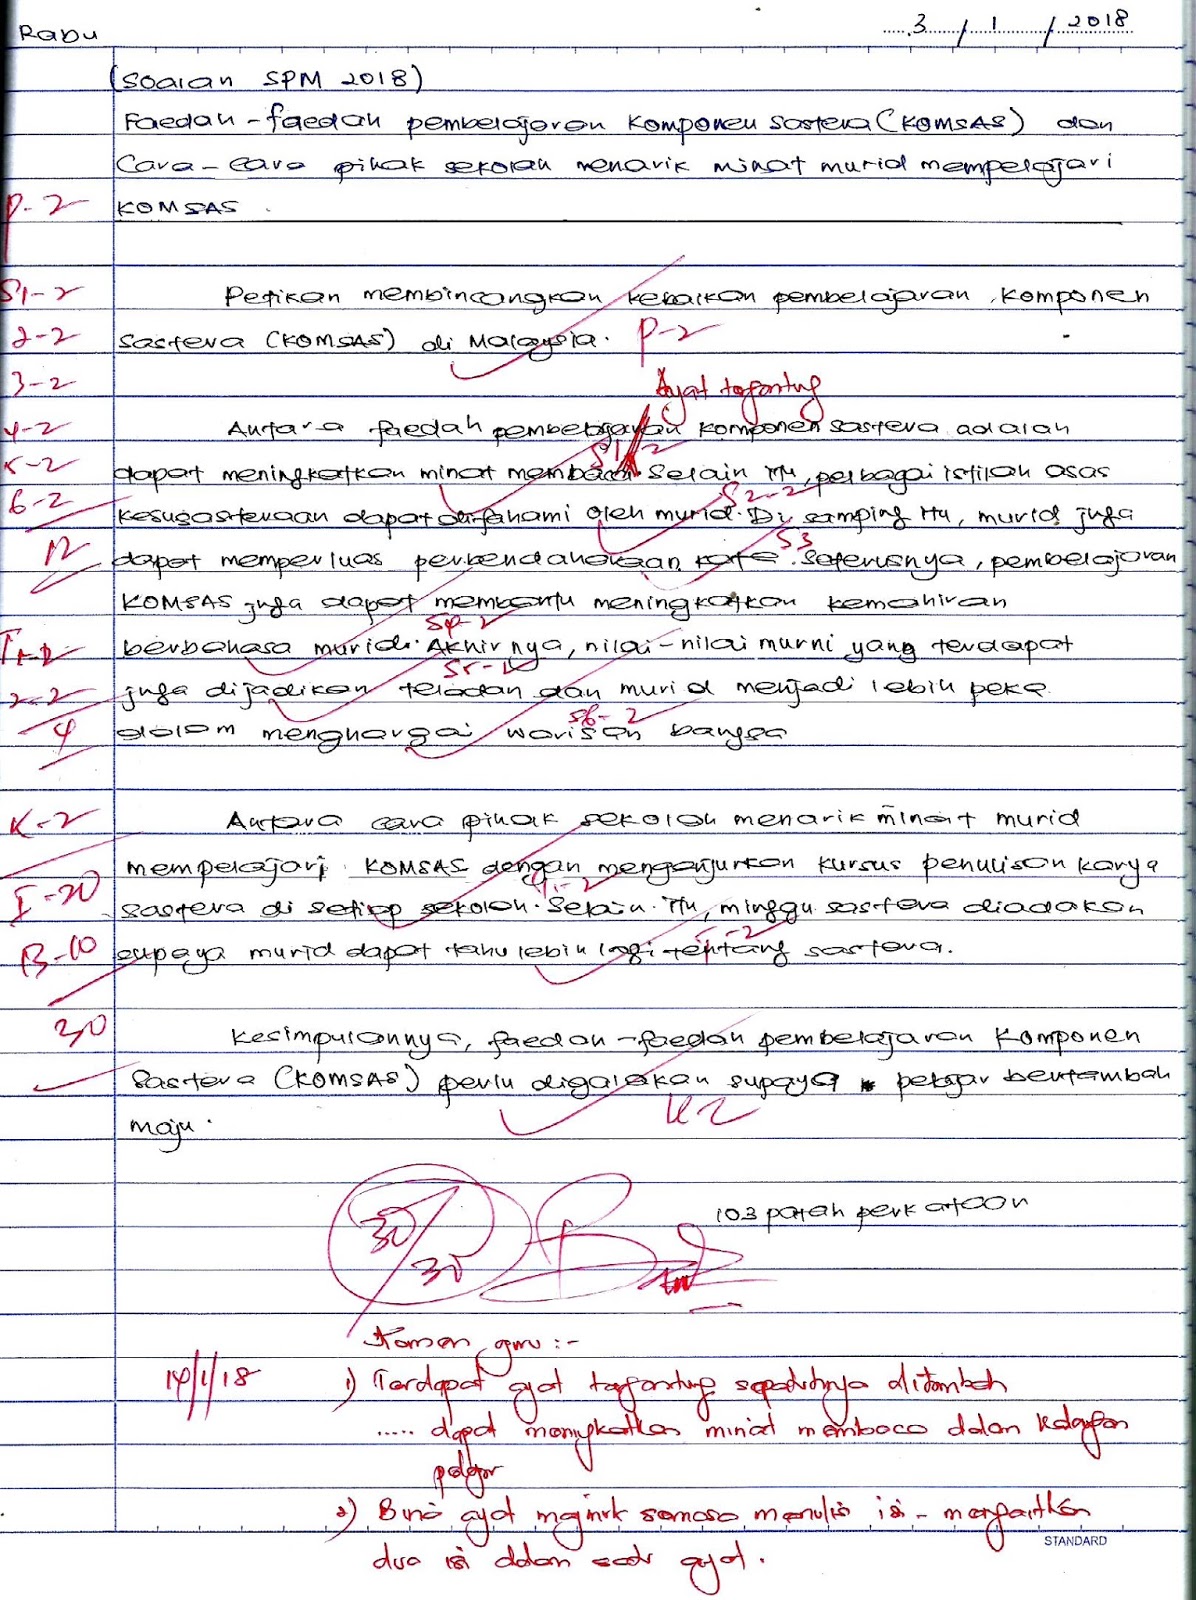 Rabu 3 / 1 / 2018
(Soalan SPM 2018)
Faedah-faedah pembelajaran komponen sastera (KOMSAS) dan
Cara-cara pihak sekolah menarik minat murid mempelajari
P-2 KOMSAS.
S1-2 Petikan membincangkan kebaikan pembelajaran komponen
2-2 sastera (KOMSAS) di Malaysia. P-2
3-2 Ayat tergantung
4-2 Antara faedah pembelajaran komponen sastera adalah
S1-2
5-2 dapat meningkatkan minat membaca. Selain itu, pelbagai istilah asas
S2-2
6-2 kesusasteraan dapat difahami oleh murid. Di samping itu, murid juga
S3
12 dapat memperluas perbendaharaan kata. Seterusnya, pembelajaran
KOMSAS juga dapat membantu meningkatkan kemahiran
S4-2
T1-2 berbahasa murid. Akhirnya, nilai-nilai murni yang terdapat
S5-2
2-2 juga dijadikan teladan dan murid menjadi lebih peka
S6-2
4 dalam menghargai warisan bangsa
K-2 Antara cara pihak sekolah menarik minat murid
mempelajari KOMSAS dengan menganjurkan kursus penulisan karya
T1-2
I-20 sastera di setiap sekolah. Selain itu, minggu sastera diadakan
B-10 supaya murid dapat tahu lebih lagi tentang sastera.
30 Kesimpulannya, faedah-faedah pembelajaran komponen
sastera (KOMSAS) perlu digalakan supaya pelajar bertambah
maju. K-2
103 patah perkataan
30/30
Komen guru :-
14/1/18 1) Terdapat ayat tergantung sepatutnya ditambah
..... dapat meningkatkan minat membaca dalam kalangan
pelajar
2) Bina ayat majmuk semasa menulis isi - mengaitkan
STANDARD
dua isi dalam satu ayat.